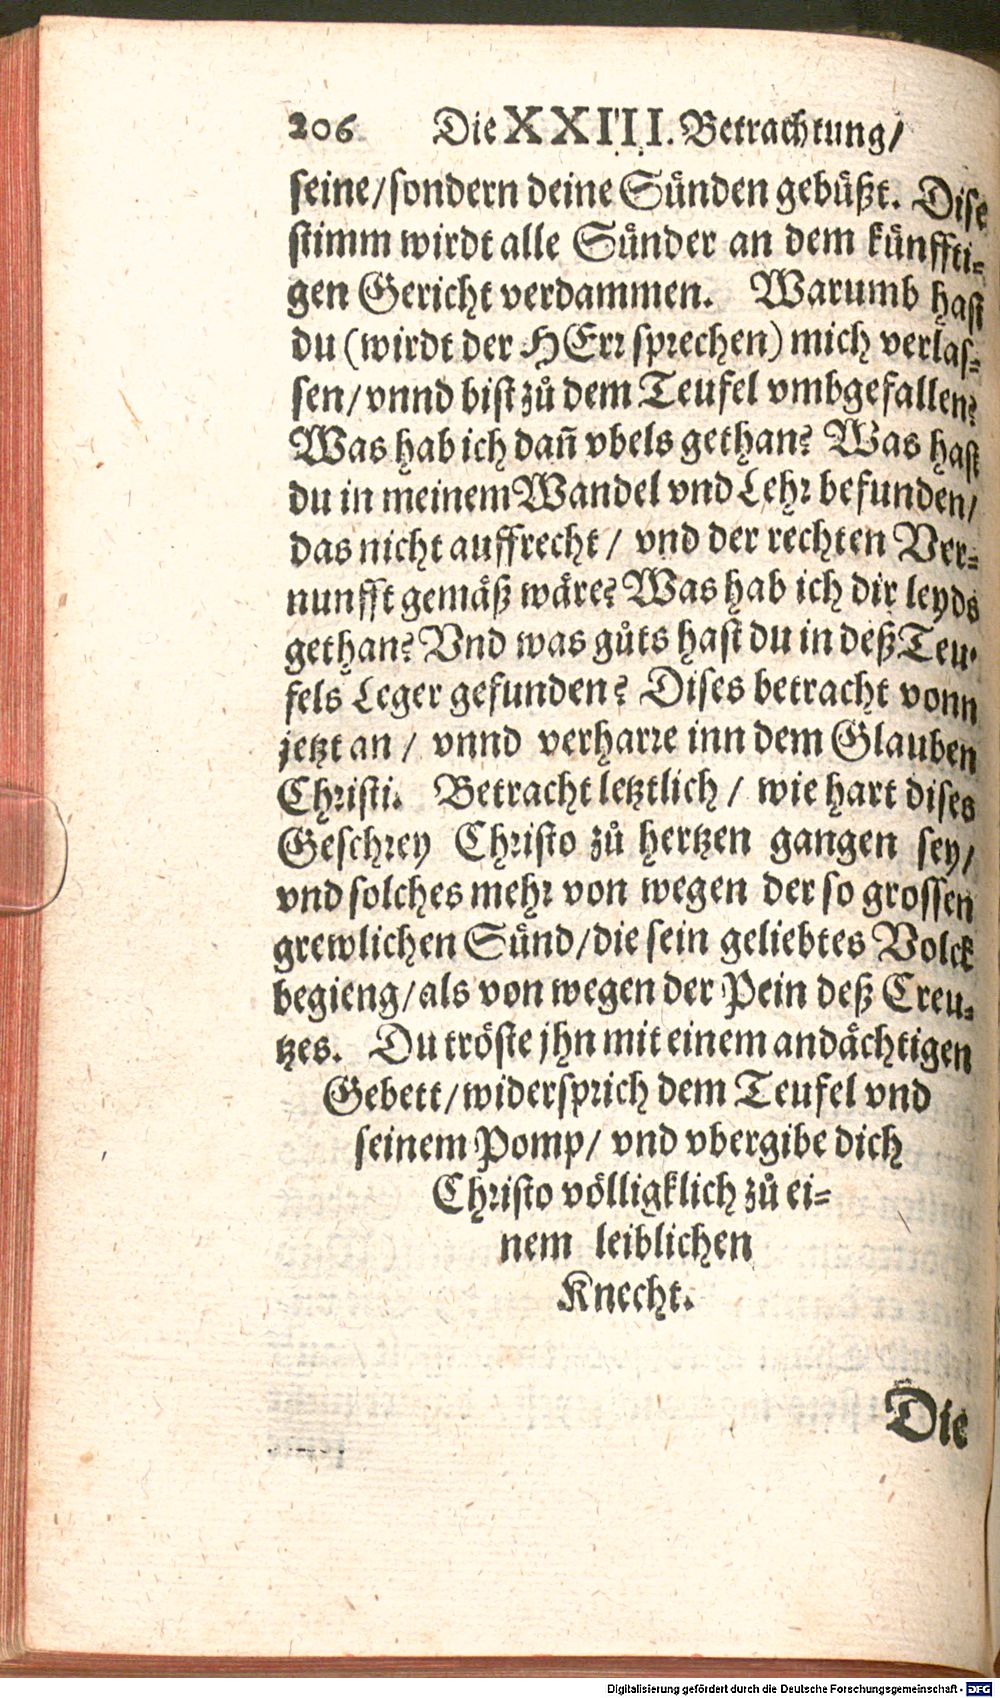 206 Die XXIIII. Betrachtung/
seine/sondern deine Sünden gebüßt. Dise
stimm wirdt alle Sünder an dem künffti-
gen Gericht verdammen. Warumb hast
du (wirdt der HErr sprechen) mich verlas-
sen/vnnd bist zů dem Teufel vmbgefallen?
Was hab ich dañ vbels gethan? Was hast
du in meinem Wandel vnd Lehr befunden/
das nicht auffrecht/ vnd der rechten Ver-
nunfft gemäß wäre? Was hab ich dir leyds
gethan? Vnd was gůts hast du in deß Teu-
fels Leger gefunden? Dises betracht vonn
jetzt an/ vnnd verharre inn dem Glauben
Christi. Betracht letztlich/ wie hart dises
Geschrey Christo zů hertzen gangen sey/
vnd solches mehr von wegen der so grossen
grewlichen Sünd/die sein geliebtes Volck
begieng/als von wegen der Pein deß Creu-
tzes. Du tröste jhn mit einem andächtigen
Gebett/widersprich dem Teufel vnd
seinem Pomp/ vnd vbergibe dich
Christo völligklich zů ei-
nem leiblichen
Knecht.
Die
Digitalisierung gefördert durch die Deutsche Forschungsgemeinschaft - DFG